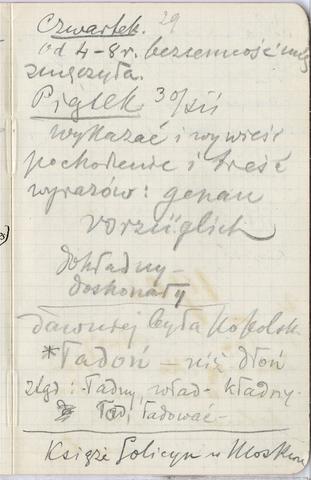 Czwartek. 29
od 4-8 r. bezsenność mię
zmęczyła.
Piątek 30/XII
wykazać i wywieść
pochodzenie i treść
wyrazów: genau
vorzüglich
dokładny -
doskonały
dawniej była
*Ładoń - niż dłoń
stąd: Ładny, wład- kładny.
Ład, ładować -
Książę Golicyn w Moskwie